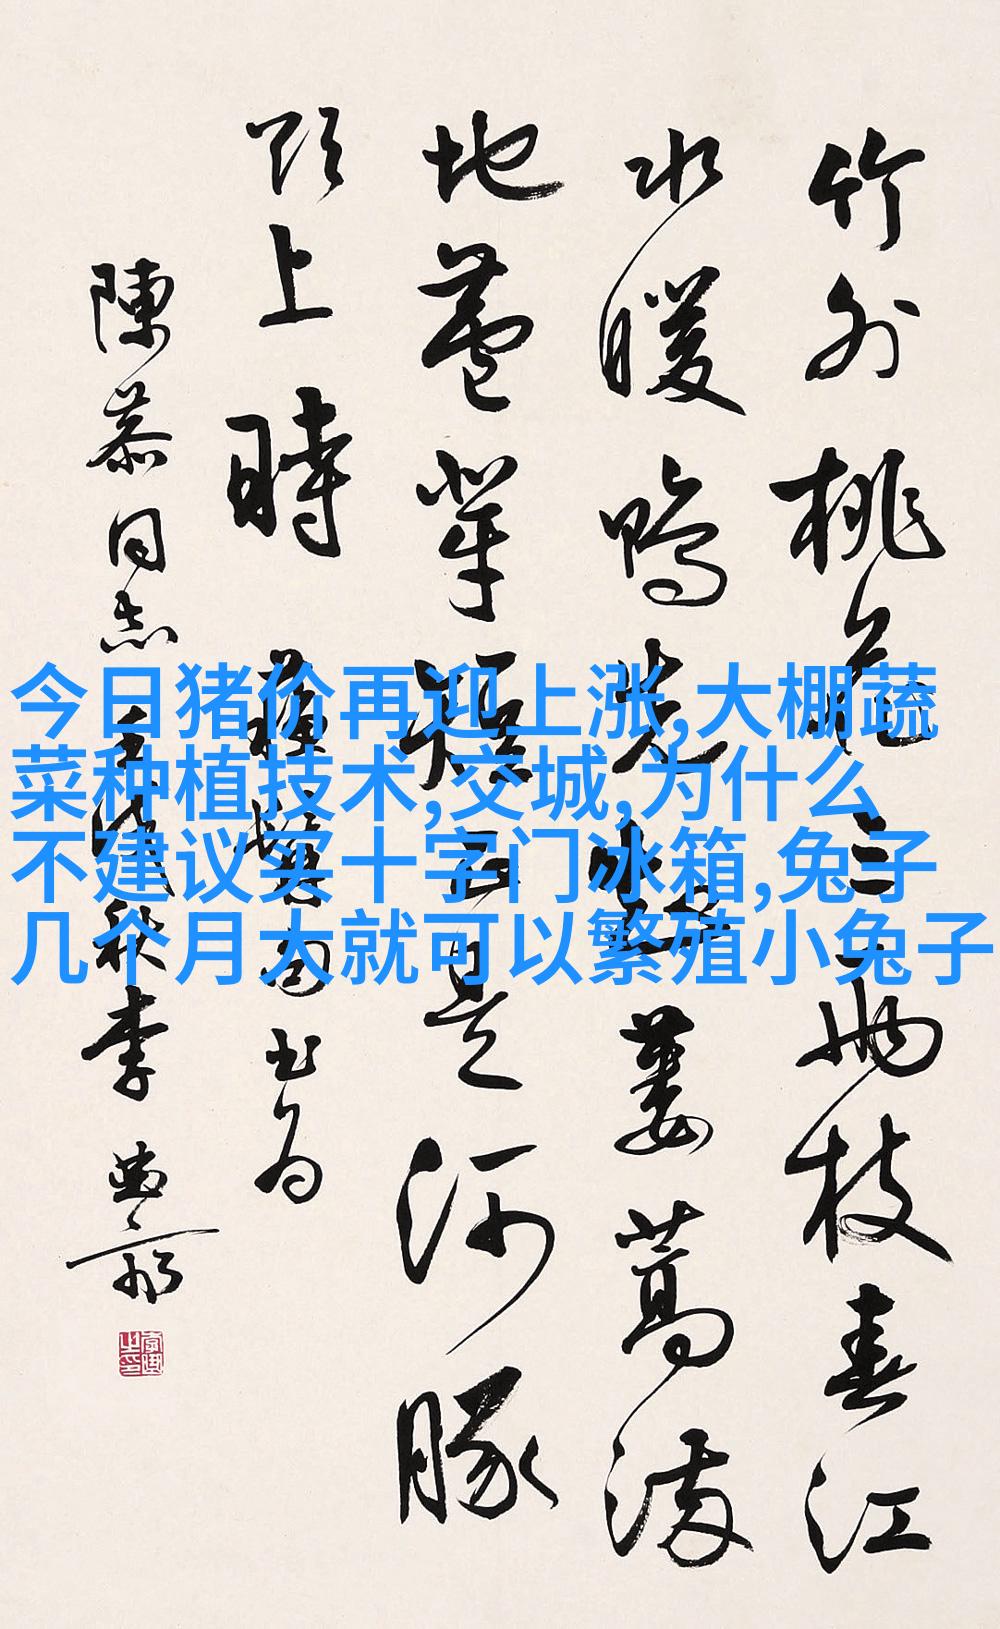 竹外桃花三两枝春江
水暖鴨先知蔞蒿满
地蘆芽短正是河豚
欲上時 蘇
陳慕同志 秋李
今日猪价再迎上涨,大棚蔬
菜种植技术,交城,为什么
不建议买十字门冰箱,兔子
几个月大就可以繁殖小兔子